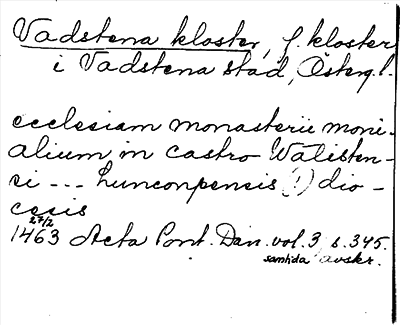 Vadstena kloster, f. kloster
i Vadstena stad, Österg.l.
ecclesiam monasterii moni-
alium in castro Walisten-
si --- Lunconpensis (!) dio-
cesis
27/2
1463 Acta Pont. Dan. vol. 3 s. 345.
samtida avskr.